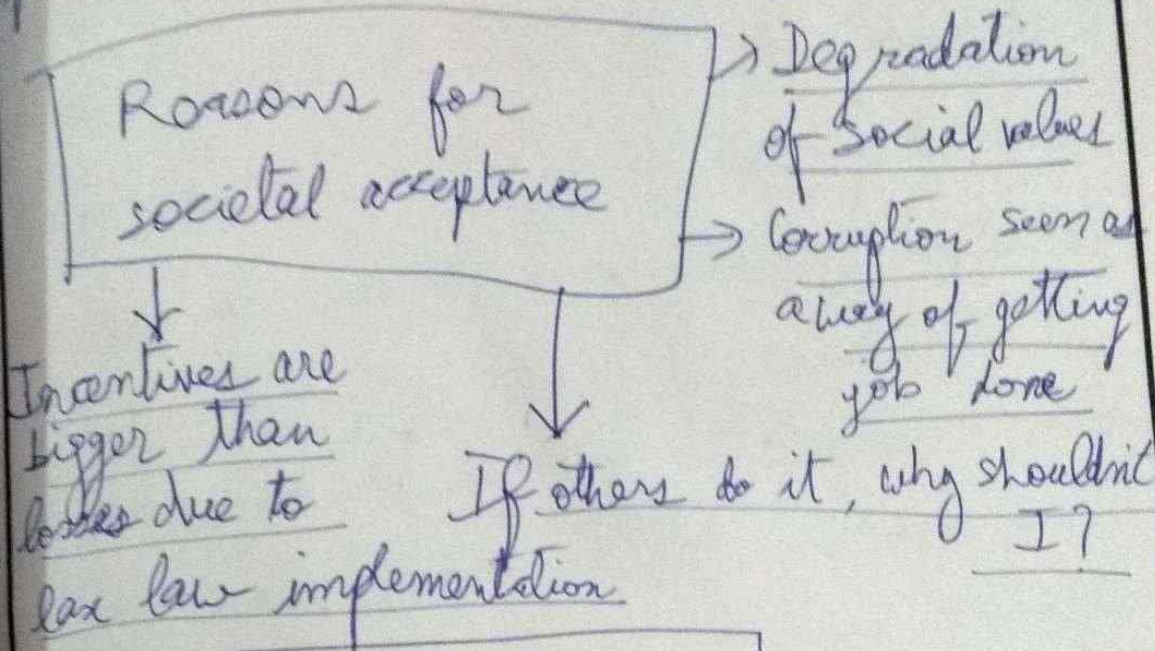 Reasons for
societal acceptance
→ Degradation
of social values
→ Corruption seen as
a way of getting
job done
Incentives are
bigger than
losses due to
lax law implementation
If others do it, why shouldn't
I?